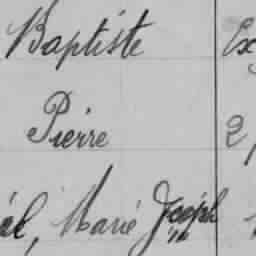 Baptiste Ex
Pierre 2,
el, Marie Joseph